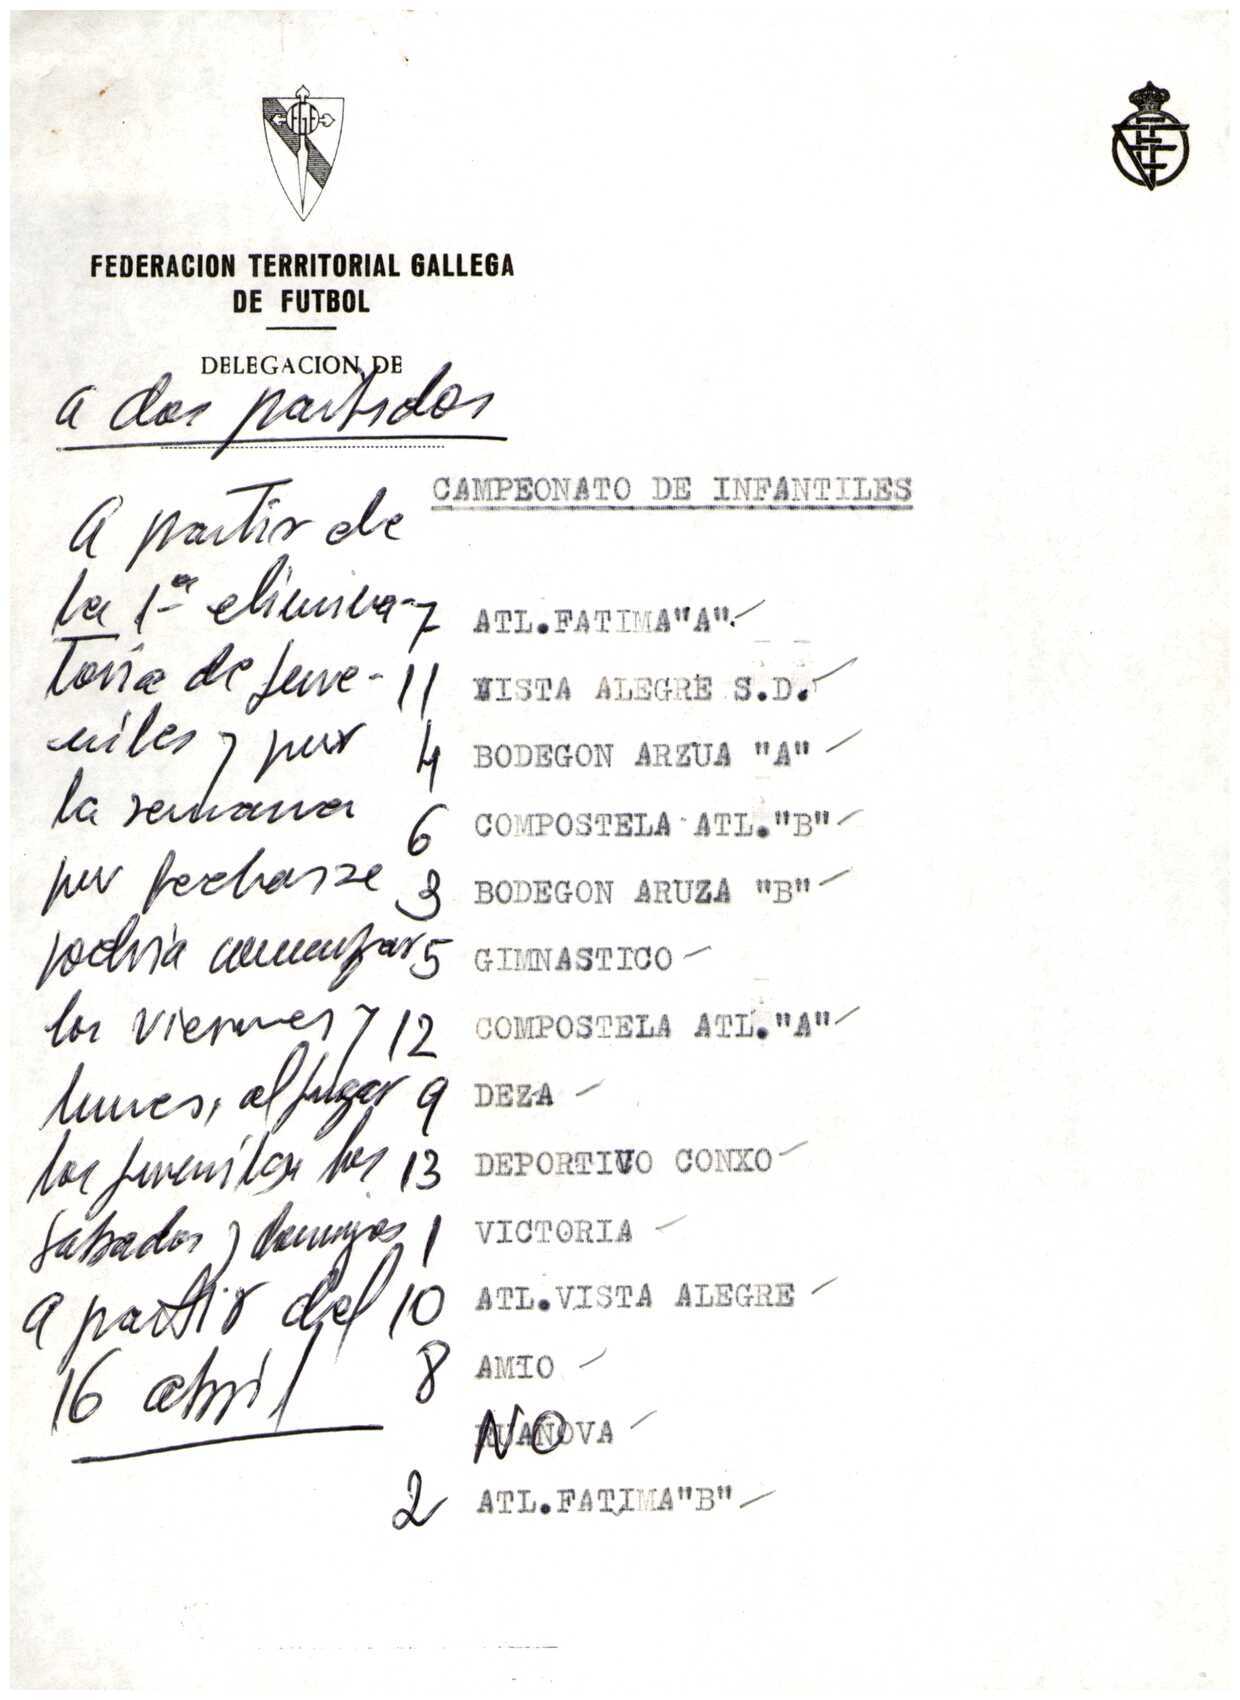 FGF
FEDERACION TERRITORIAL GALLEGA
DE FUTBOL
DELEGACION DE
a dos partidos
CAMPEONATO DE INFANTILES
A partir de
la 1ª elimina-
toria de juve-
niles y por
la semana
por fecharse
podria comenzar
los viernes y
lunes, al jugar
los juveniles los
sabados y domingos
a partir del
16 abril
7 ATL.FATIMA"A".
11 VISTA ALEGRE S.D.
4 BODEGON ARZUA "A"
6 COMPOSTELA ATL."B"
3 BODEGON ARUZA "B"
5 GIMNASTICO
12 COMPOSTELA ATL."A"
9 DEZA
13 DEPORTIVO CONXO
1 VICTORIA
10 ATL.VISTA ALEGRE
8 AMIO
NO RUANOVA
2 ATL.FATIMA"B"